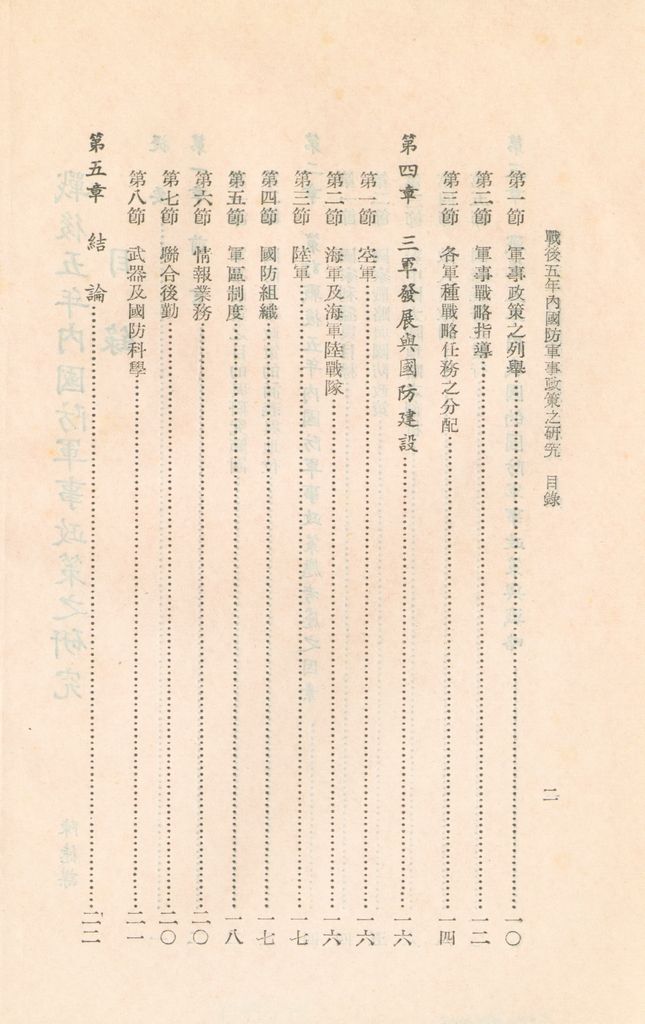 戰後五年內國防軍事政策之研究 目錄 二
第一節 軍事政策之列舉 一〇
第二節 軍事戰略指導 一二
第三節 各軍種戰略任務之分配 一四
第四章 三軍發展與國防建設 一六
第一節 空軍 一六
第二節 海軍及海軍陸戰隊 一六
第三節 陸軍 一七
第四節 國防組織 一七
第五節 軍區制度 一八
第六節 情報業務 二〇
第七節 聯合後勤 二〇
第八節 武器及國防科學 二一
第五章 結論 二二